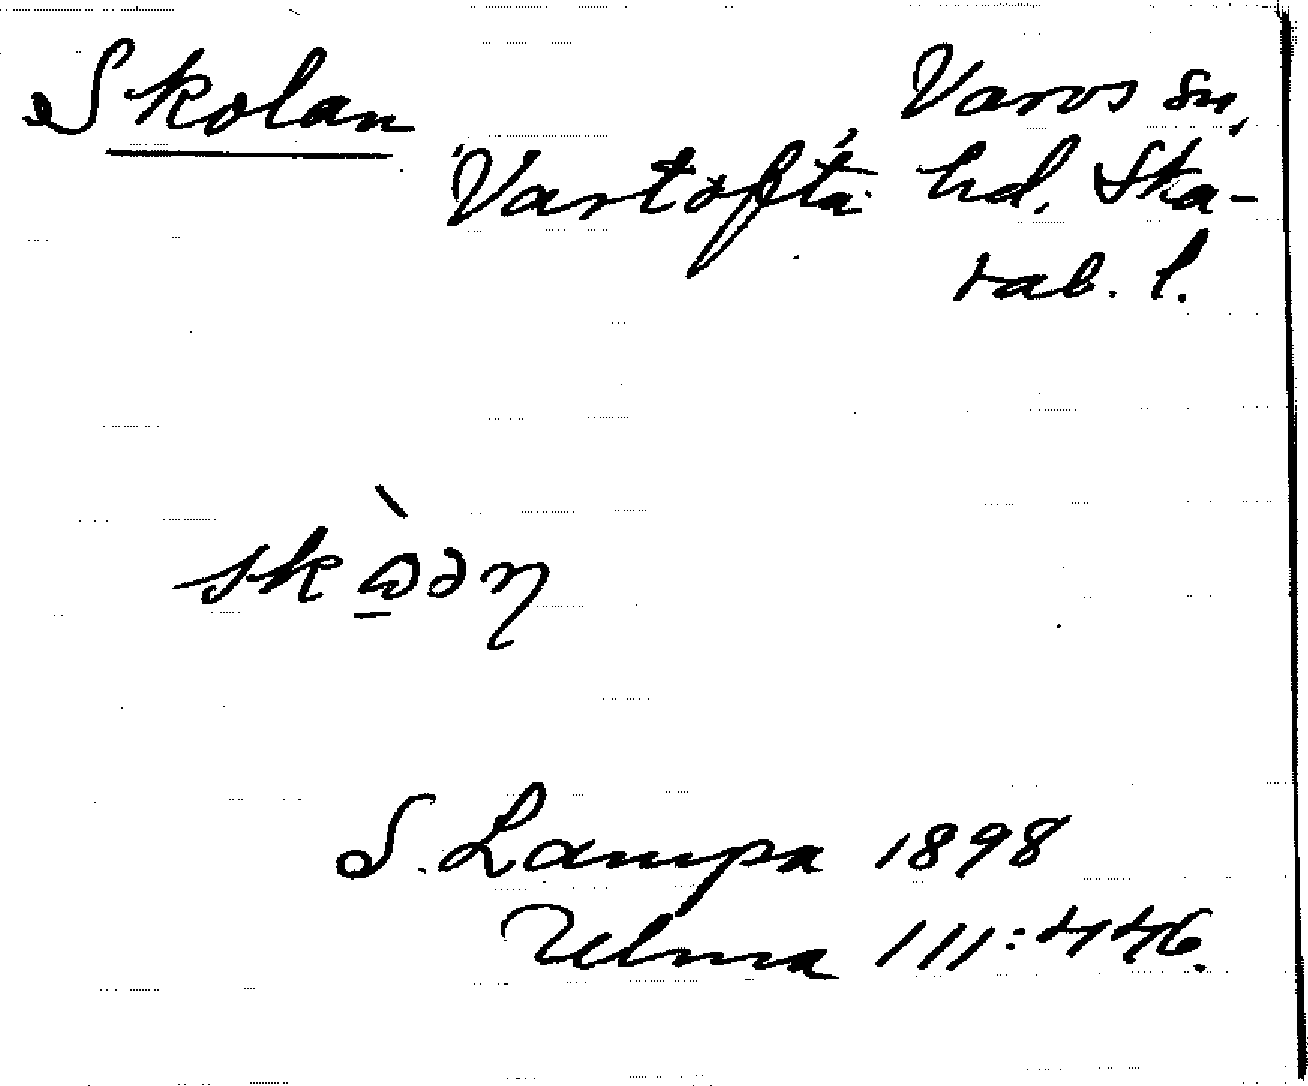 Skolan
Varvs sn,
Vartofta hd. Ska-
rab. l.
S. Lampa 1898
Ulma 111:446.